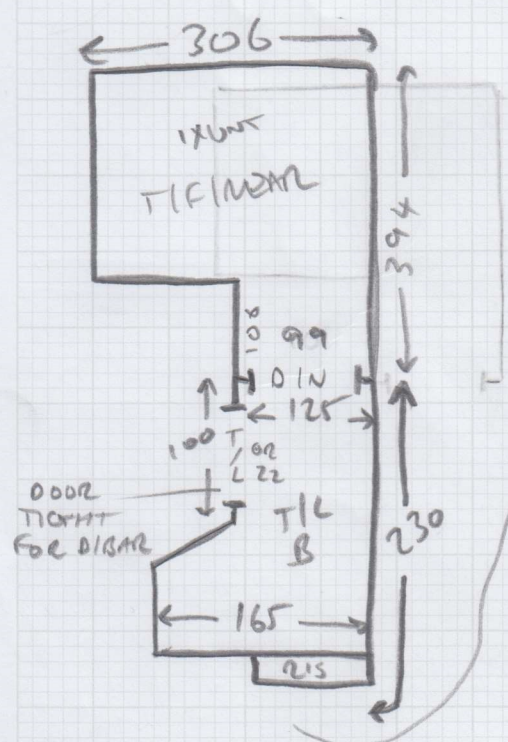 306
1XUNT
T/F/NEAR
394
108
99
D/N
125
100
T
/ OR
L 22
DOOR
TIGHT
FOR D/BAR
T/L
B
230
165
2/S